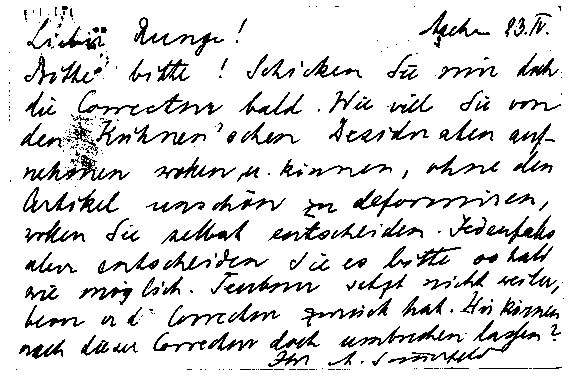 Lieber Runge! Aachen 23.IV.
Bitte bitte! Schicken Sie mir doch
die Correctur bald. Wie viel Sie von
den Kühnen'schen Desideraten auf-
nehmen wollen u. können, ohne den
Artikel unschön zu deformiren,
wollen Sie selbst entscheiden. Jedenfalls
aber entscheiden Sie es bitte so bald
wie möglich. Teubner setzt nicht weiter,
bevor er d. Correctur zurück hat. Sie können
nach dieser Correctur doch umbrechen lassen?
Ihr A. Sommerfeld